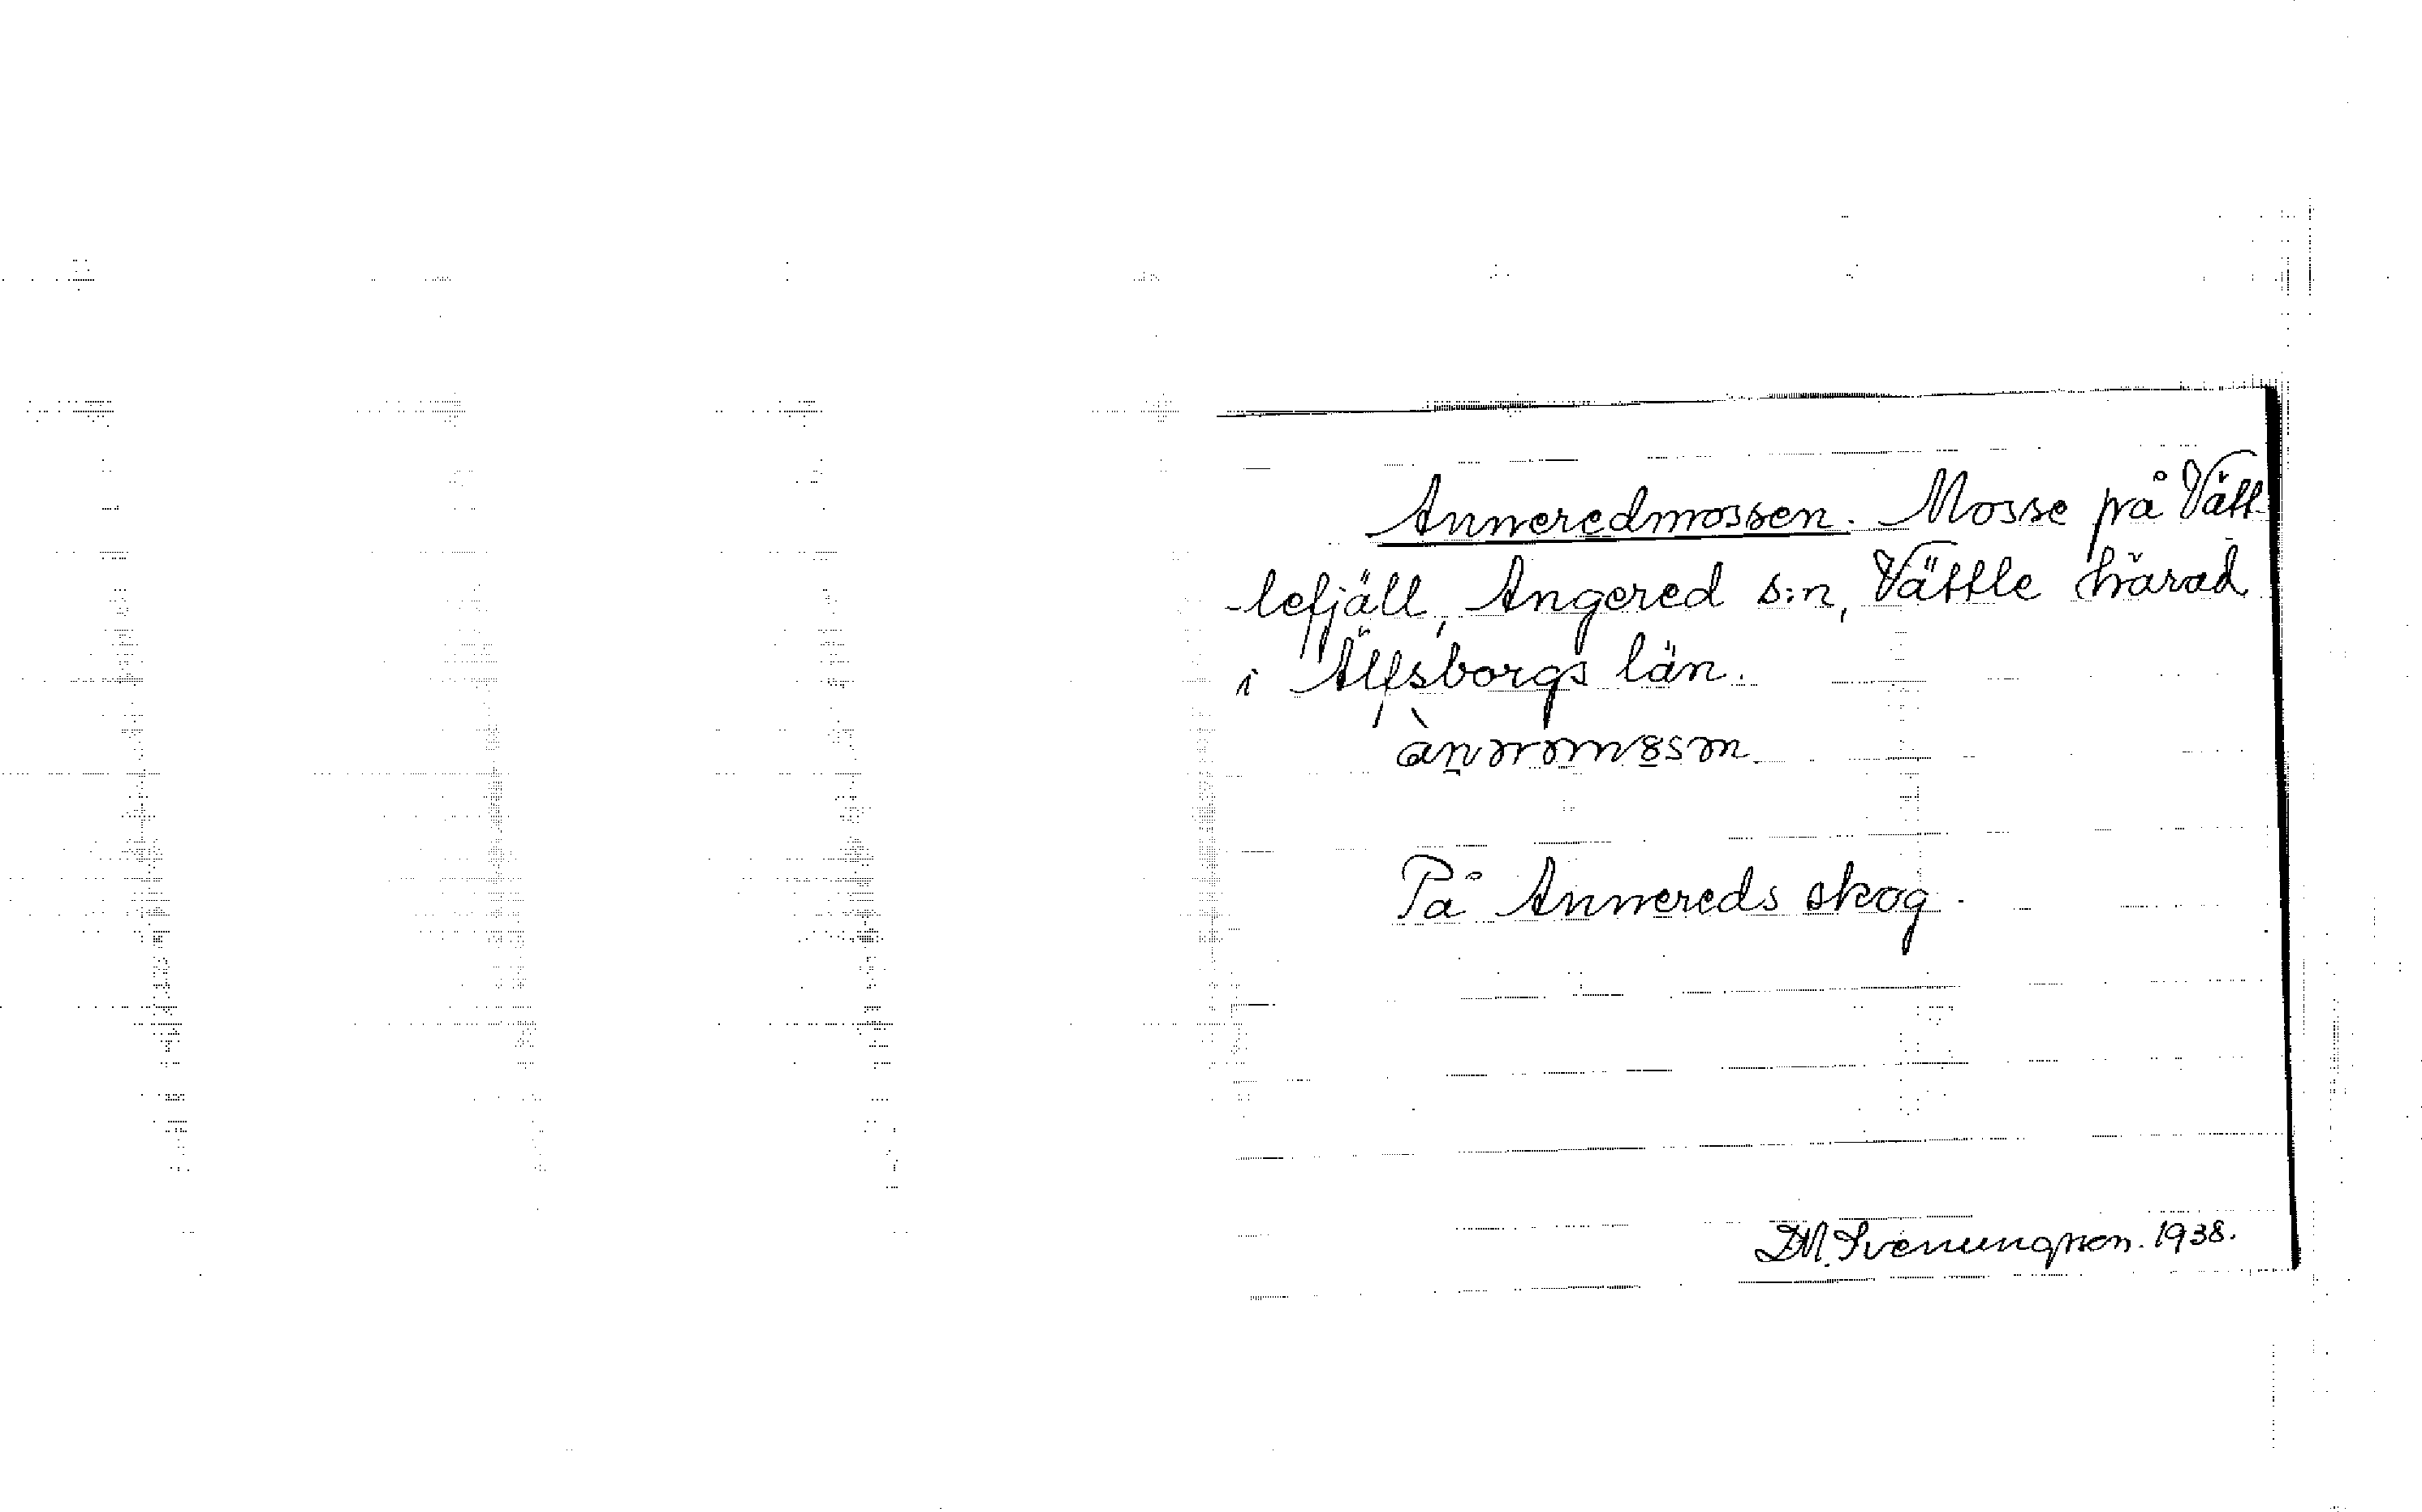 Anneredmossen. Mosse på Vätt-
-lefjäll, Angered s:n, Vättle härad
i Älfsborgs län.
På Annereds skog.
DM. Svenungsson. 1938.